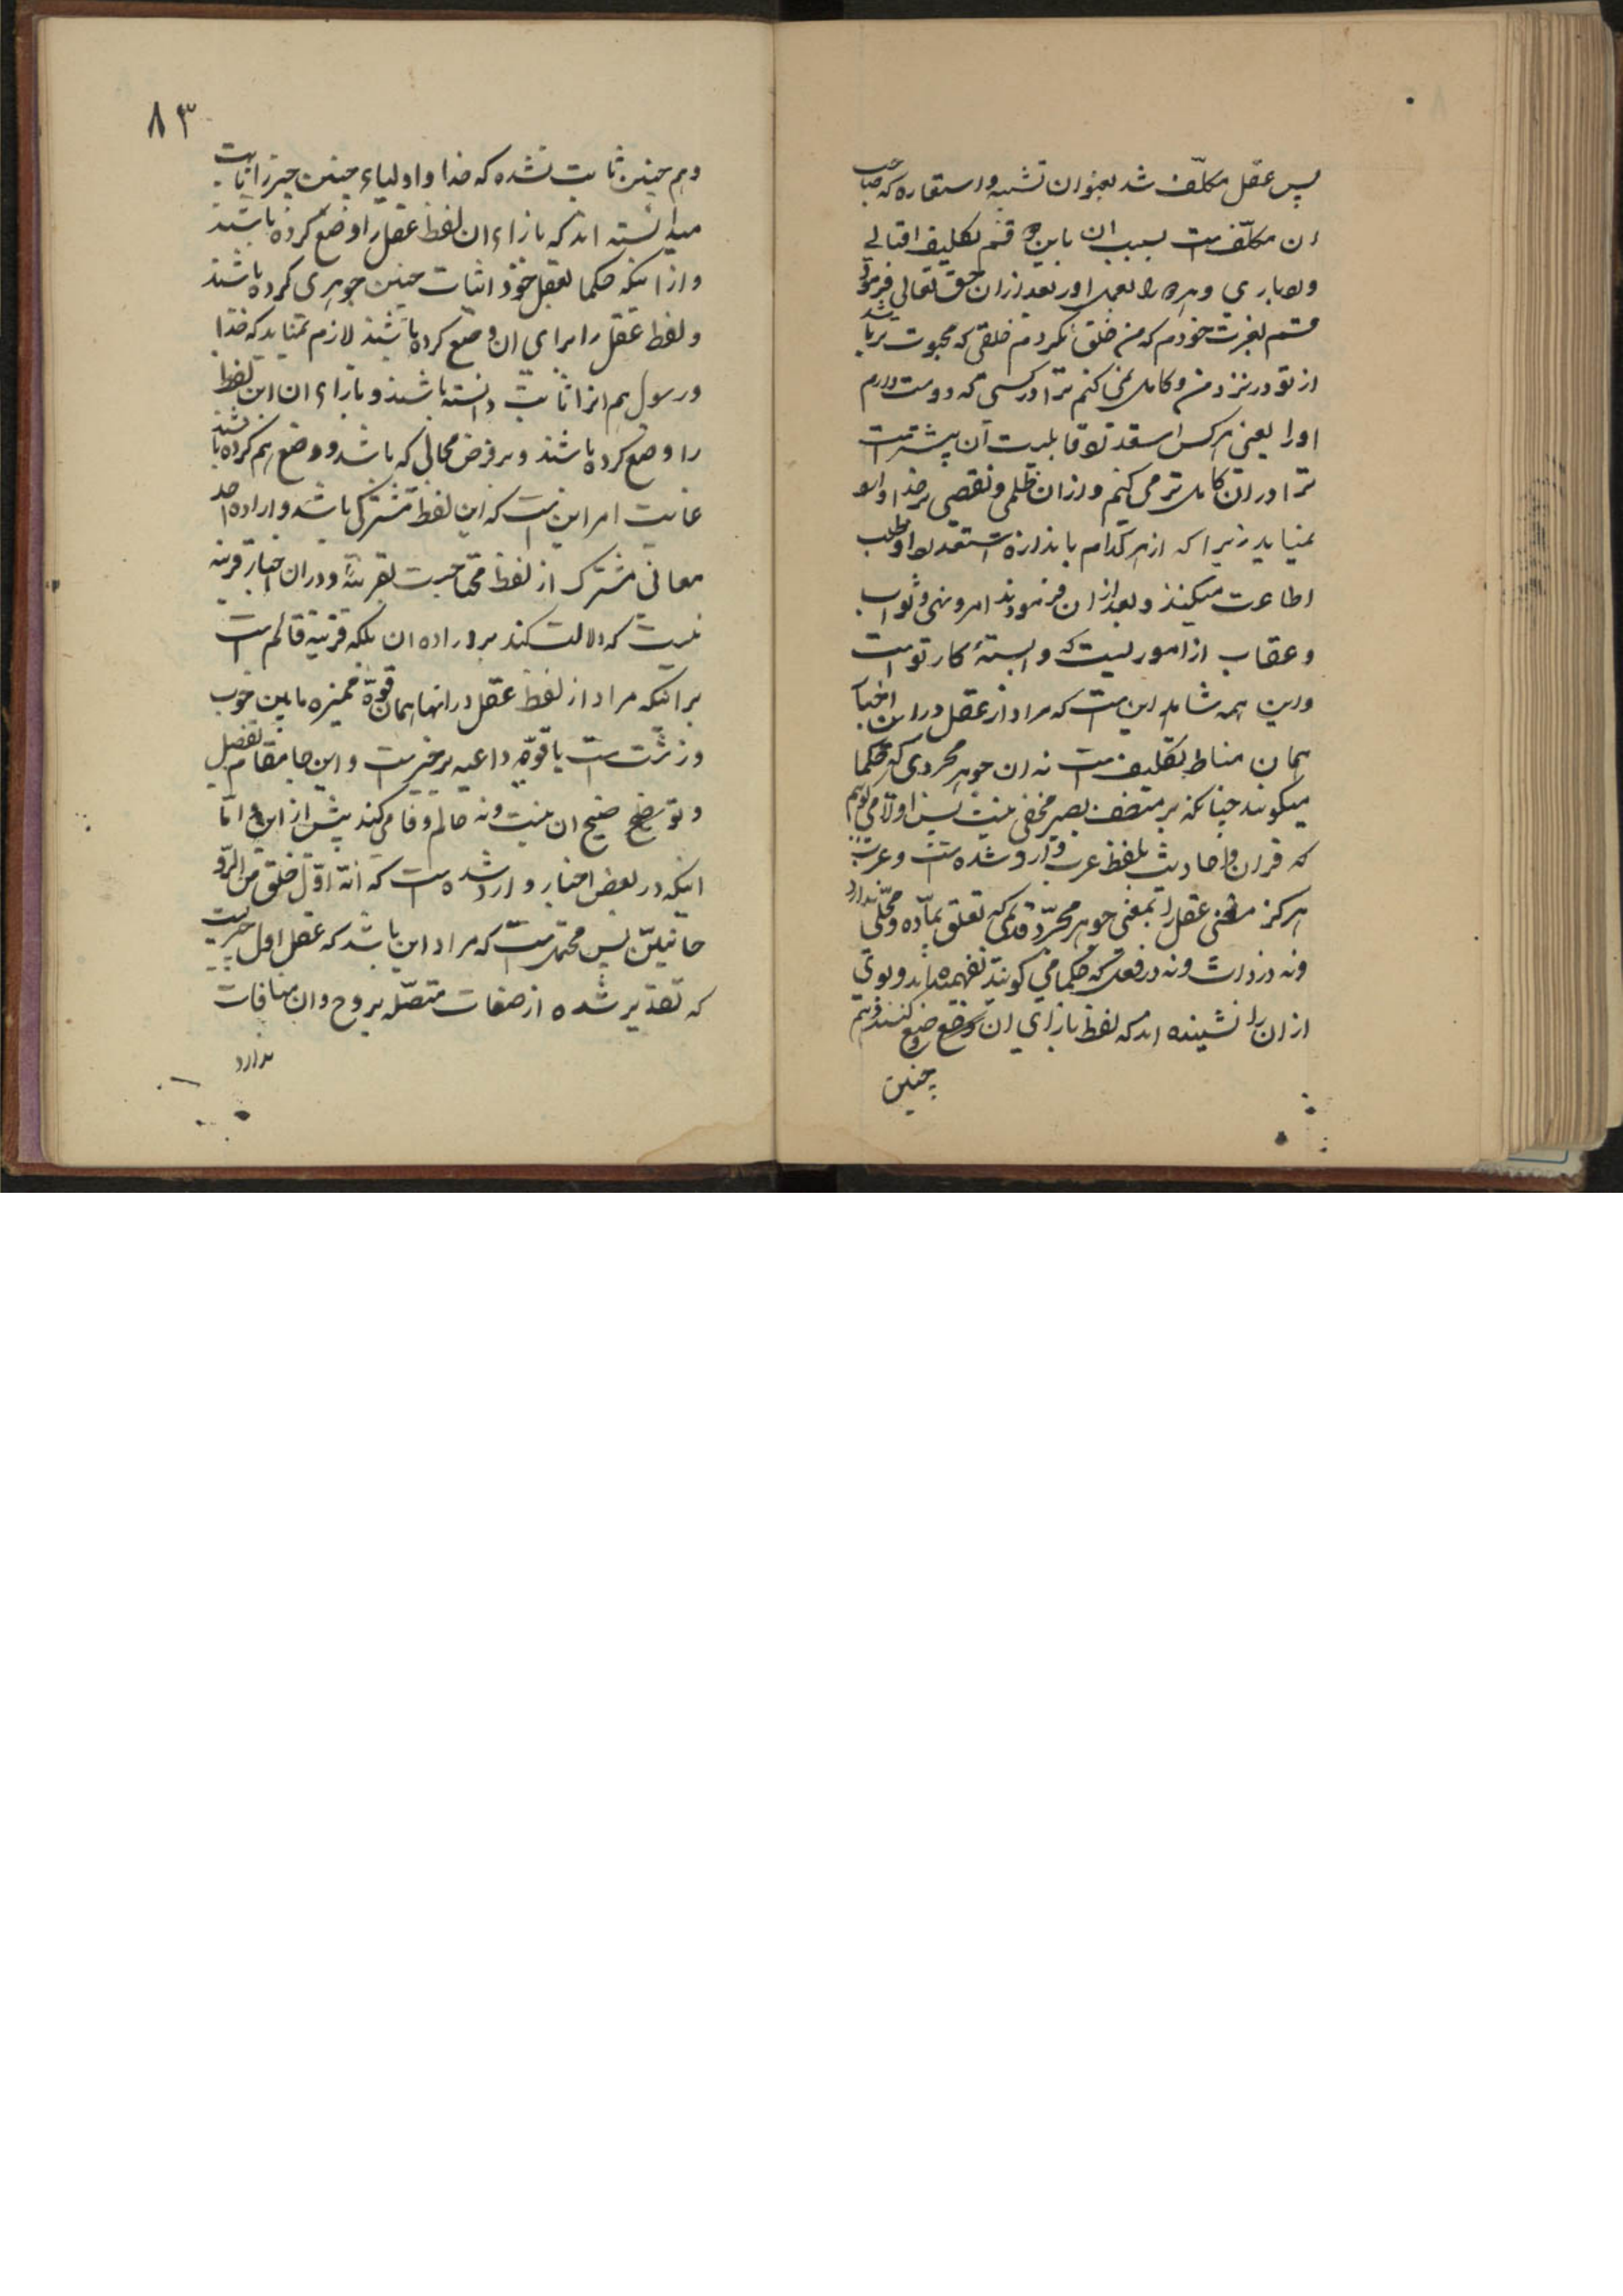 پس عقل مکلّف شد بعنوان تشبیه و استعاره که صاحب
ان مکلّف است بسبب ان باین دو قسم تکلیف اقبالی
و ادباری و هر دو را بعمل اورد بعد ازان حق تعالی فرمود
قسم بعزت خودم که من خلق نکردم خلقی که محبوب تر باشد
از تو در نزد من و کامل نمی کنم ترا در کسی که دوست دارم
او را یعنی هر کس استعداد و قابلیت آن بیشتر است
ترا در ان کامل تر می کنم و ازان ظلمی و نقصی بر خدا و او
نمیاید زیرا که از هر کدام باندازه استعداد او طلب
اطاعت میکند و بعد از ان فرمودند امر و نهی و ثواب
و عقاب از اموریست که وابستۀ کار تو است
و این همه شاهد این است که مراد از عقل در این اخبار
همان مناط تکلیف است نه ان جوهر مجردی که حکما
میکویند چنانکه بر منصف بصیر مخفی نیست پس اولا می کویم
که قران و احادیث بلفظ عرب وارد شده است و عرب
هرکز معنی عقل را بمعنی جوهر مجرّد قدیمی که تعلق بمادّه و محلّی ندارد
و نه در ذات و نه در فعل که حکما می کویند نفهمیده اند و بوی
از ان را نشنیده اند که لفظ بازای ان وضع کنند و هم
چنین
۸۳
و هم چنین ثابت نشده که خدا و اولیاء چنین چیز را ثابت
میدانسته اند که بازاء ان لفظ عقل را وضع کرده باشند
و از اینکه حکما بعقل خود اثبات چنین جوهری کرده باشند
و لفظ عقل را برای ان وضع کرده باشند لازم نمیاید که خدا
و رسول هم انرا ثابت دانسته باشند و بازاء ان این لفظ
را وضع کرده باشند و بر فرض محالی که باشد و وضع هم کرده باشند
غایت امر این است که این لفظ مشترکی باشد و اراده احد
معانی مشترک از لفظ محتاجست بقرینۀ و در ان اخبار قرینه
نیست که دلالت کند بر اراده ان بلکه قرینه قائم است
بر اینکه مراد از لفظ عقل در انها همان قوّۀ ممیزه مابین خوب
و زشت است یا قوّه داعیه بر خیر است و این جا مقام تفصیل
و توضیح ان نیست و نه حالم وفا می کند بیش از این و امّا
اینکه در بعض اخبار وارد شده است که انّه اوّل خلق من الرّو
حانیّین پس محتمل است که مراد این باشد که عقل اول چیزیست
که تقدیر شده از صفات متصّله بروح و ان منافات
ندارد